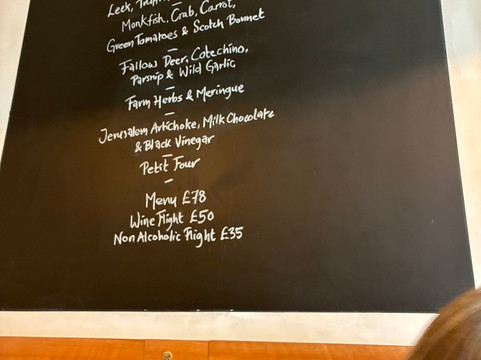 Leek,
Monkfish, Crab, Carrot,
Green Tomatoes & Scotch Bonnet
—
Fallow Deer, Cotechino,
Parsnip & Wild Garlic
—
Farm Herbs & Meringue
—
Jerusalem Artichoke, Milk Chocolate
& Black Vinegar
—
Petit Four
—
Menu £78
Wine Flight £50
Non Alcoholic Flight £35